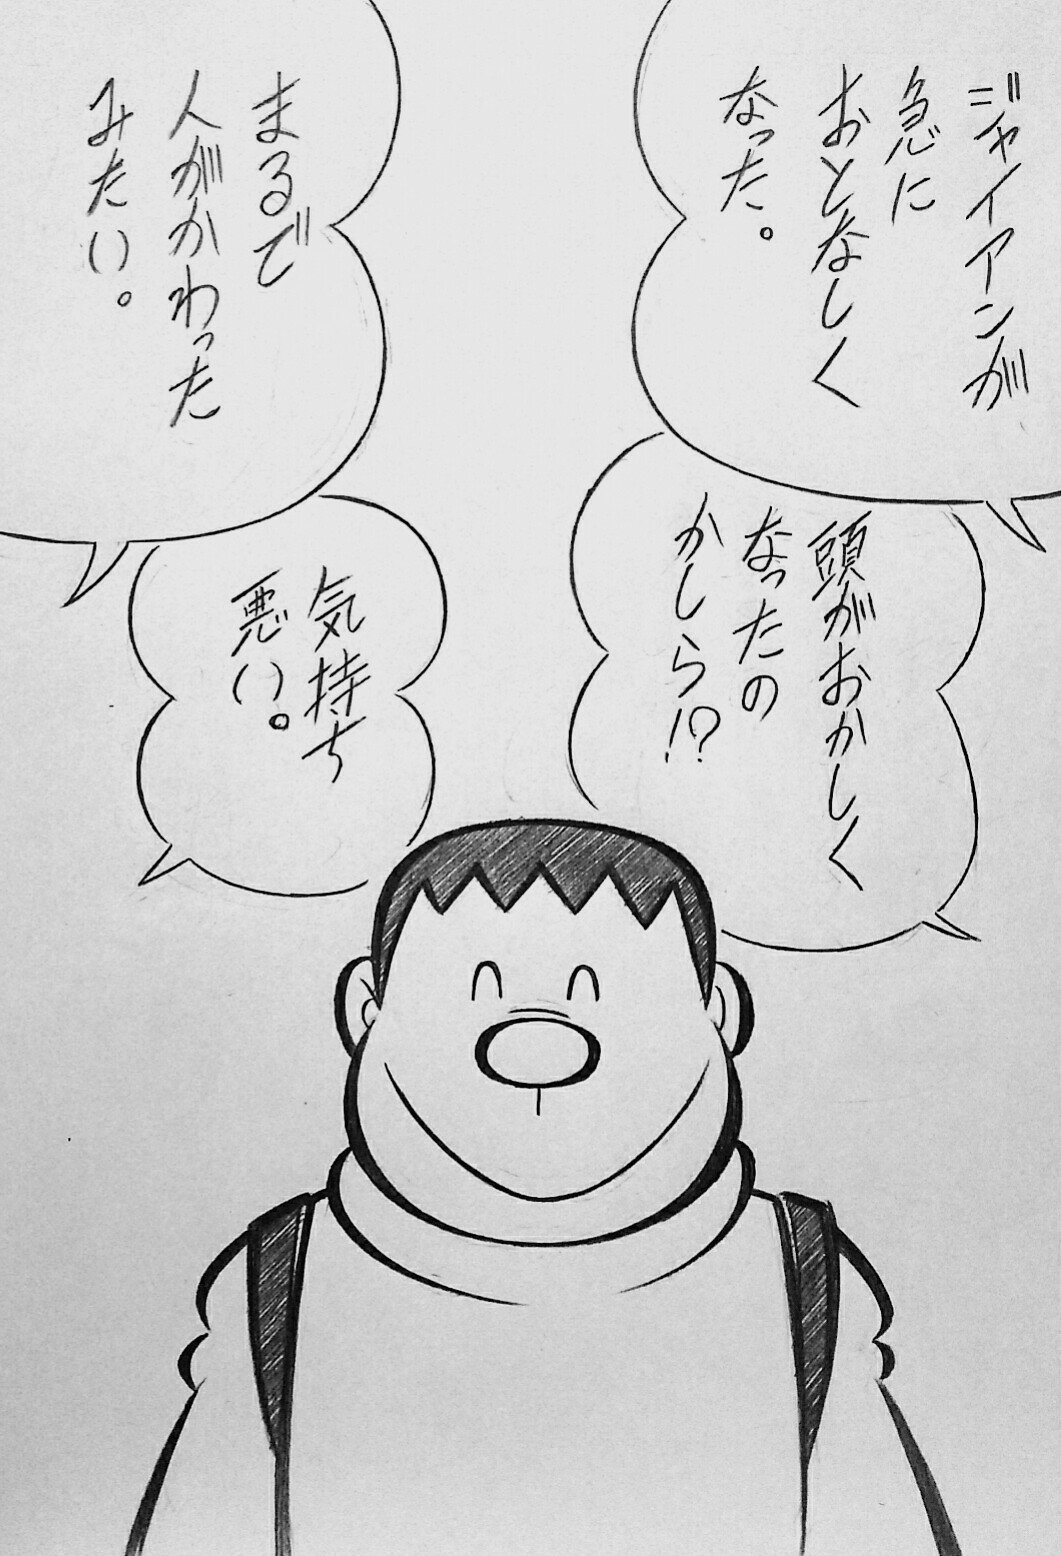 ジャイアンが
急に
おとなしく
なった。
頭がおかしく
なったの
かしら!?
まるで
人がかわった
みたい。
気持ち
悪い。